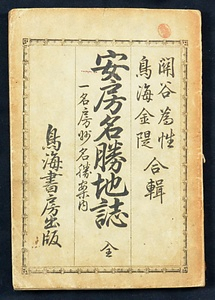 関谷為性
鳥海金隄
合輯
安房名勝地誌 全
一名房州名勝案内
鳥海書房出版